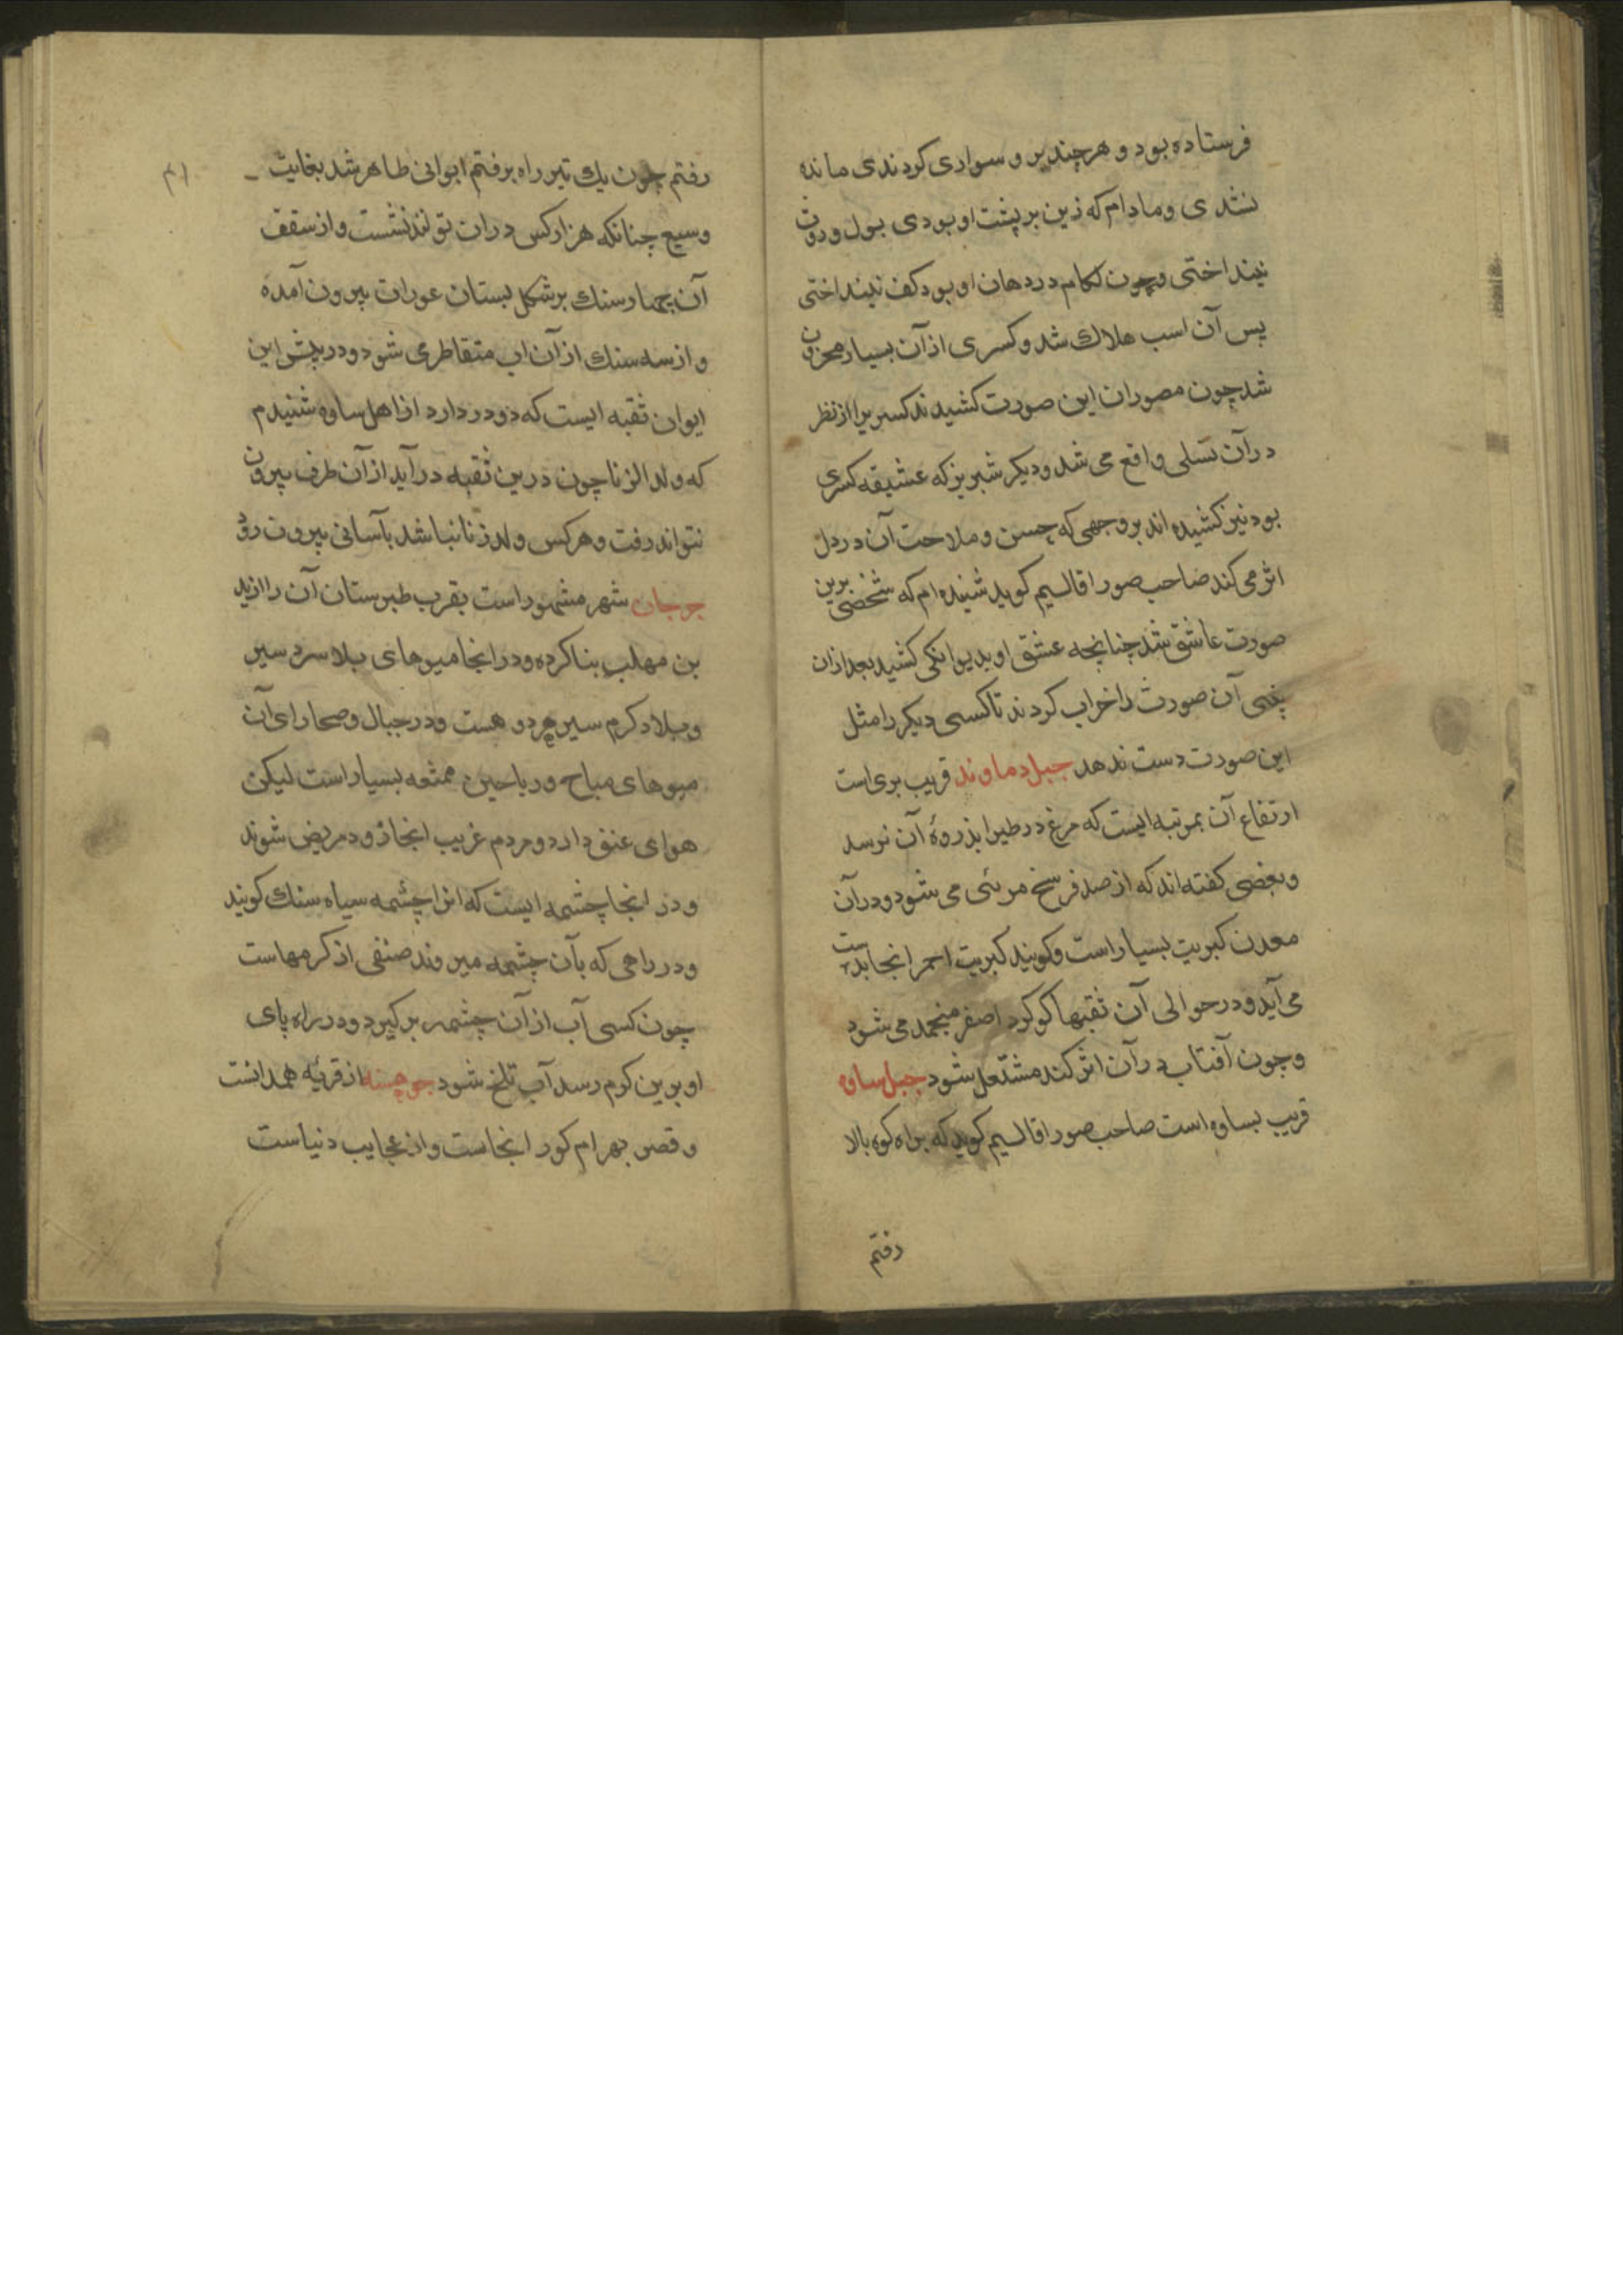 فرستاده بود و هرچند برو سواری کردندی مانده
نشدی و مادام که زین بر پشت او بودی بول و روث
نینداختی و چون لکام در دهان او بود کف نینداختی
پس آن اسب هلاك شد و کسری از آن بسیار محزون
شد چون مصوران این صورت کشیدند کسریرا از نظر
در آن تسلی واقع می شد و دیکر شبریز که عشیقه کسری
بود نیز کشیده اند بر وجهی که حسن و ملاحت آن در دل
اثر می کند صاحب صور اقالیم کوید شنیده ام که شخصی برین
صورت عاشق شد چنانچه عشق او بدیوانکی کشید بعد ازان
بینی آن صورت را خراب کردند تا کسی دیکر را مثل
این صورت دست ندهد جبل دماوند قریب بری است
ارتفاع آن بمرتبه ایست که مرغ در طیران بذروهٔ آن نرسد
و بعضی کفته اند که از صد فرسخ مرئی می شود و در آن
معدن کبریت بسیار است و کویند کبریت احمر انجا بدست
می آید و در حوالی آن ثقبها کوکرد اصفر منجمد می شود
و چون آفتاب در آن اثر کند مشتعل شود جبل ساوه
قریب بساوه است صاحب صور اقالیم کوید که براه کوه بالا
رفتم
۴۱
رفتم چون یك تیر راه برفتم ایوانی ظاهر شد بغایت
وسیع چنانکه هزار کس در ان تواند نشست و از سقف
آن چهار سنك بر شکل پستان عورات بیرون آمده
و از سه سنك از آن اب متقاطر می شود و در پیش این
ایوان ثقبه ایست که دو در دارد از اهل ساوه شنیدم
که ولد الزنا چون درین ثقبه در آید از آن طرف بیرون
نتواند رفت و هر کس ولد زنا نباشد بآسانی بیرون رود
جرجان شهر مشهور است بقرب طبرستان آن را یزید
بن مهلب بنا کرده و در انجا میوهای بلاد سرد سیر
و بلاد کرم سیر هر دو هست و در جبال و صحارای آن
میوهای مباح و ریاحین ممتعه بسیار است لیکن
هوای عنق دارد و مردم غریب انجا زود مریض شوند
و در انجا چشمه ایست که انرا چشمه سیاه سنك کویند
و در راهی که بآن چشمه میروند صنفی از کرمهاست
چون کسی آب از آن چشمه بر کیرد و در راه پای
او برین کرم رسد آب تلخ شود جوهسته از قریه همدانست
و قصر بهرام کور انجاست و از عجایب دنیاست